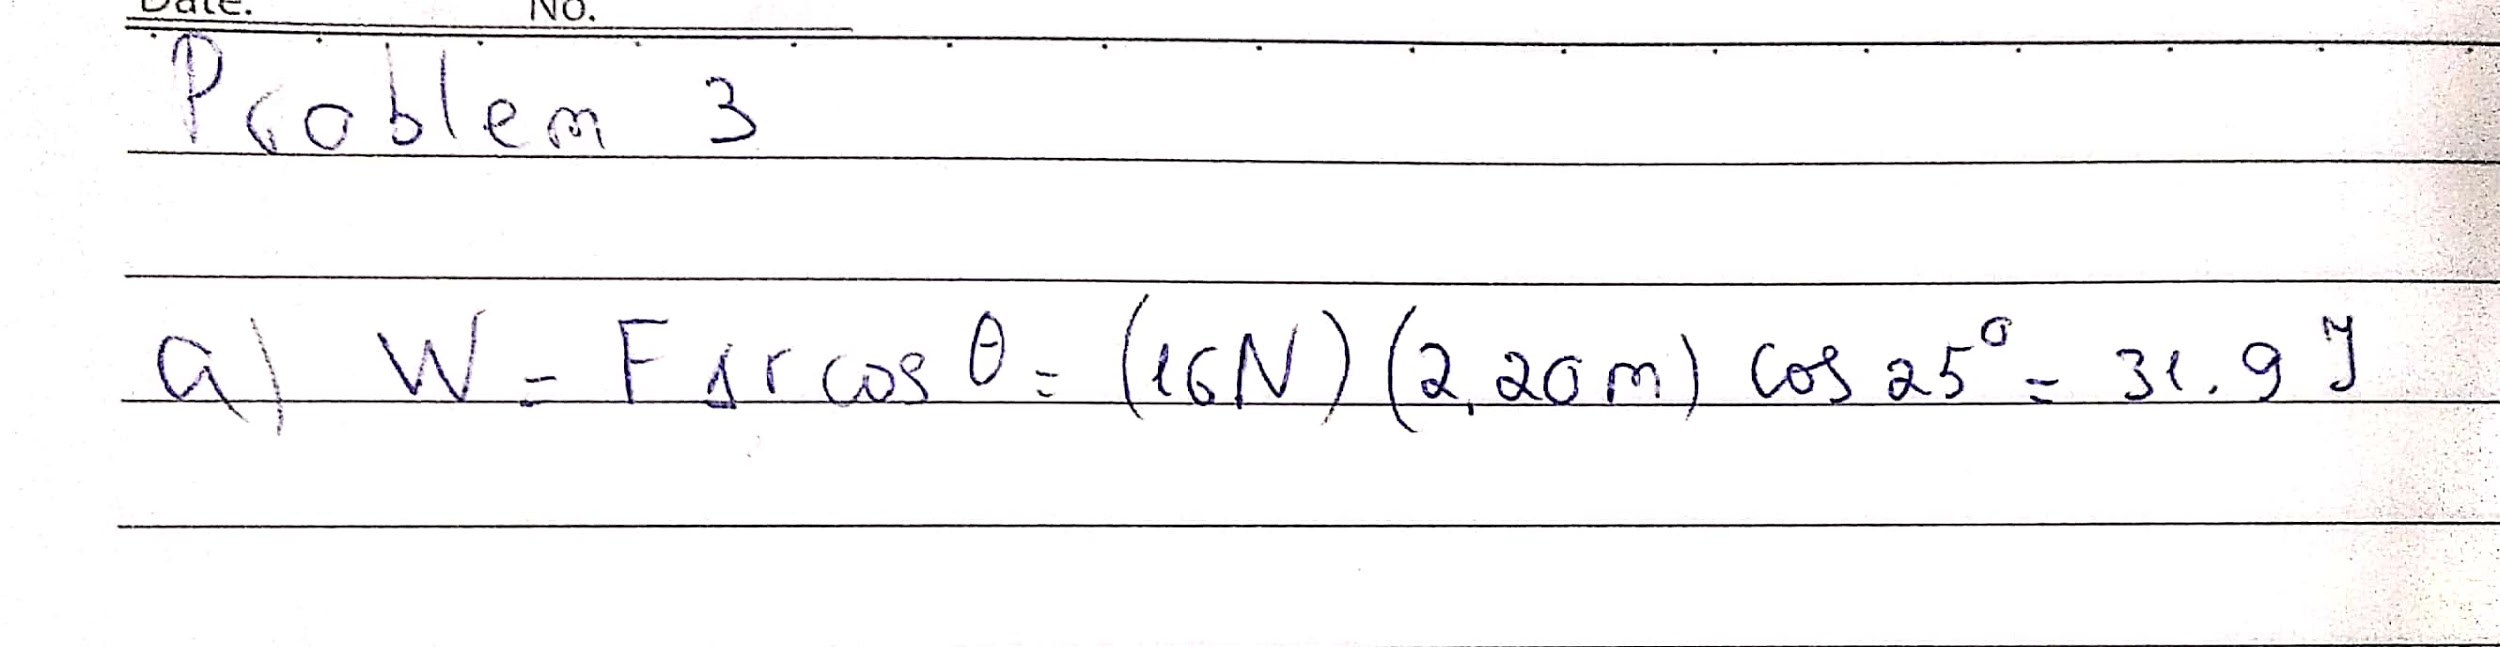 Date. No.
Problem 3
a) W = F Δr cos θ = (16N) (2,20m) cos 25° = 31.9 J